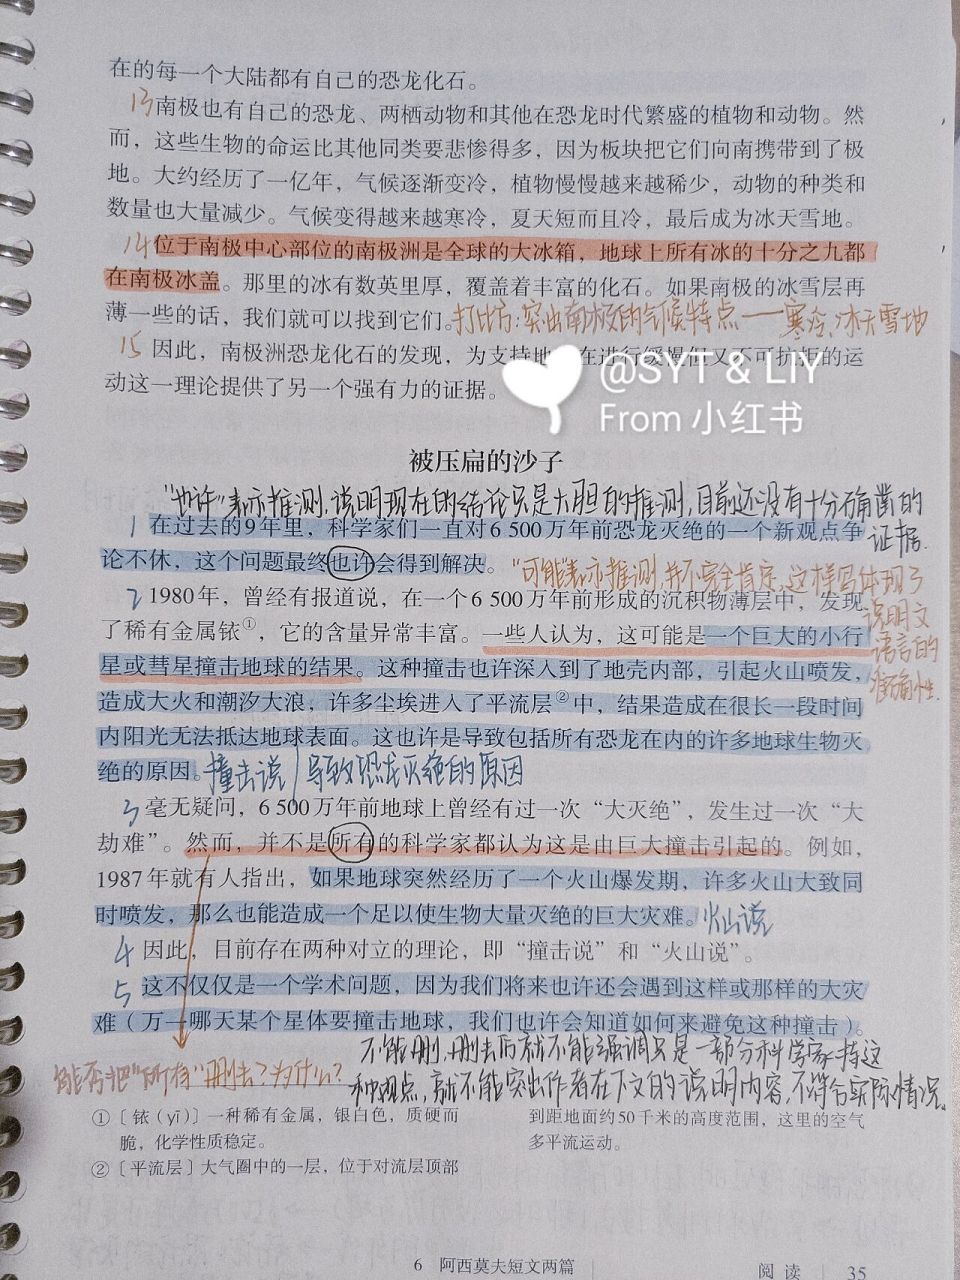 在的每一个大陆都有自己的恐龙化石。
13南极也有自己的恐龙、两栖动物和其他在恐龙时代繁盛的植物和动物。然
而，这些生物的命运比其他同类要悲惨得多，因为板块把它们向南携带到了极
地。大约经历了一亿年，气候逐渐变冷，植物慢慢越来越稀少，动物的种类和
数量也大量减少。气候变得越来越寒冷，夏天短而且冷，最后成为冰天雪地。
14位于南极中心部位的南极洲是全球的大冰箱，地球上所有冰的十分之九都
在南极冰盖。那里的冰有数英里厚，覆盖着丰富的化石。如果南极的冰雪层再
薄一些的话，我们就可以找到它们。打比方：突出南极的气候特点——寒冷，冰天雪地
15 因此，南极洲恐龙化石的发现，为支持地 在进行缓慢但又不可抗拒的运
动这一理论提供了另一个强有力的证据。
@SYT & LIY
From 小红书
被压扁的沙子
“也许”表示推测，说明现在的结论只是大胆的推测，目前还没有十分确凿的
证据.
1 在过去的9年里，科学家们一直对6 500万年前恐龙灭绝的一个新观点争
论不休，这个问题最终也许会得到解决。
“可能”表示推测，并不完全肯定，这样写体现了
说明文
语言的
准确性.
2 1980年，曾经有报道说，在一个6 500万年前形成的沉积物薄层中，发现
了稀有金属铱①，它的含量异常丰富。一些人认为，这可能是一个巨大的小行
星或彗星撞击地球的结果。这种撞击也许深入到了地壳内部，引起火山喷发，
造成大火和潮汐大浪，许多尘埃进入了平流层②中，结果造成在很长一段时间
内阳光无法抵达地球表面。这也许是导致包括所有恐龙在内的许多地球生物灭
绝的原因。撞击说/导致恐龙灭绝的原因
3 毫无疑问，6 500万年前地球上曾经有过一次“大灭绝”，发生过一次“大
劫难”。然而，并不是所有的科学家都认为这是由巨大撞击引起的。例如，
1987年就有人指出，如果地球突然经历了一个火山爆发期，许多火山大致同
时喷发，那么也能造成一个足以使生物大量灭绝的巨大灾难。火山说
4 因此，目前存在两种对立的理论，即“撞击说”和“火山说”。
5 这不仅仅是一个学术问题，因为我们将来也许还会遇到这样或那样的大灾
难（万一哪天某个星体要撞击地球，我们也许会知道如何来避免这种撞击）。
能否把“所有”删去？为什么？
不能删，删去后就不能强调只是一部分科学家持这
种观点，就不能突出作者在下文的说明内容，不符合实际情况。
①〔铱（yī）〕一种稀有金属，银白色，质硬而
脆，化学性质稳定。
②〔平流层〕大气圈中的一层，位于对流层顶部
到距地面约50千米的高度范围，这里的空气
多平流运动。
6 阿西莫夫短文两篇
阅读 35